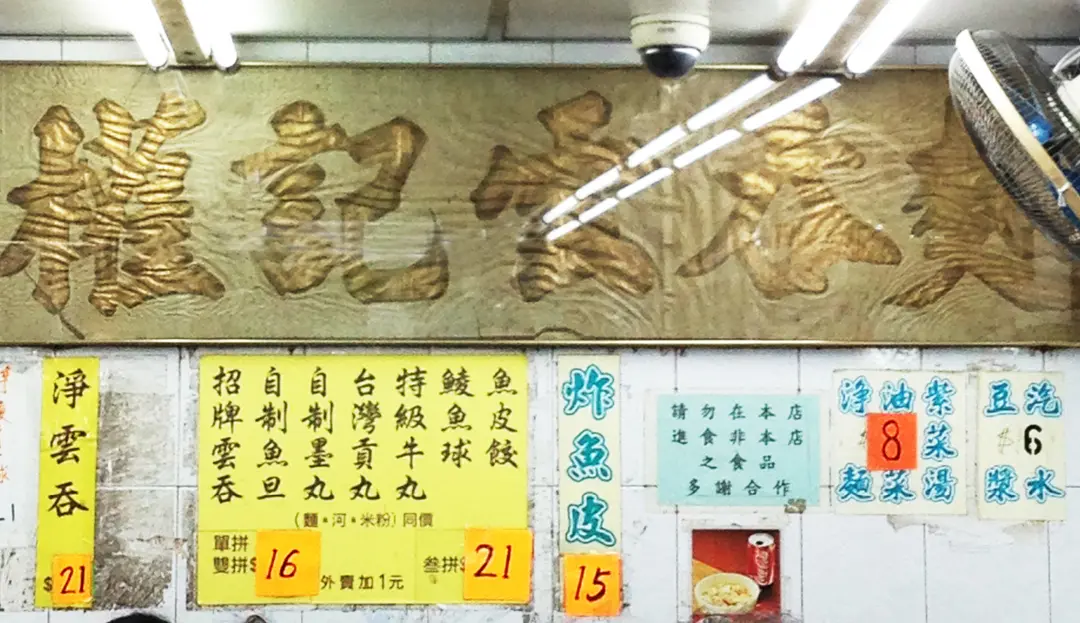 權記雲吞
淨雲吞
$21
招牌雲吞
自制魚旦
自制墨丸
台灣貢丸
特級牛丸
鯪魚球
魚皮餃
(麵。河。米粉)同價
單拼
雙拼$16
外賣加1元
叁拼$21
炸魚皮
15
請勿在本店
進食非本店
之食品
多謝合作
淨麵
油菜
紫菜湯
8
豆漿
汽水
$6